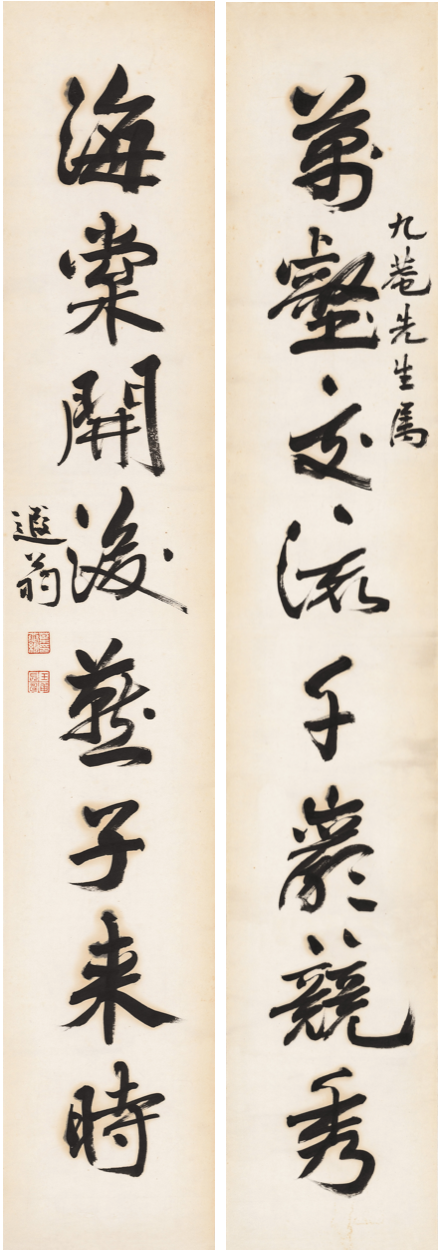 萬壑交流千巖競秀
九菴先生属
海棠開後燕子来時
遐翁